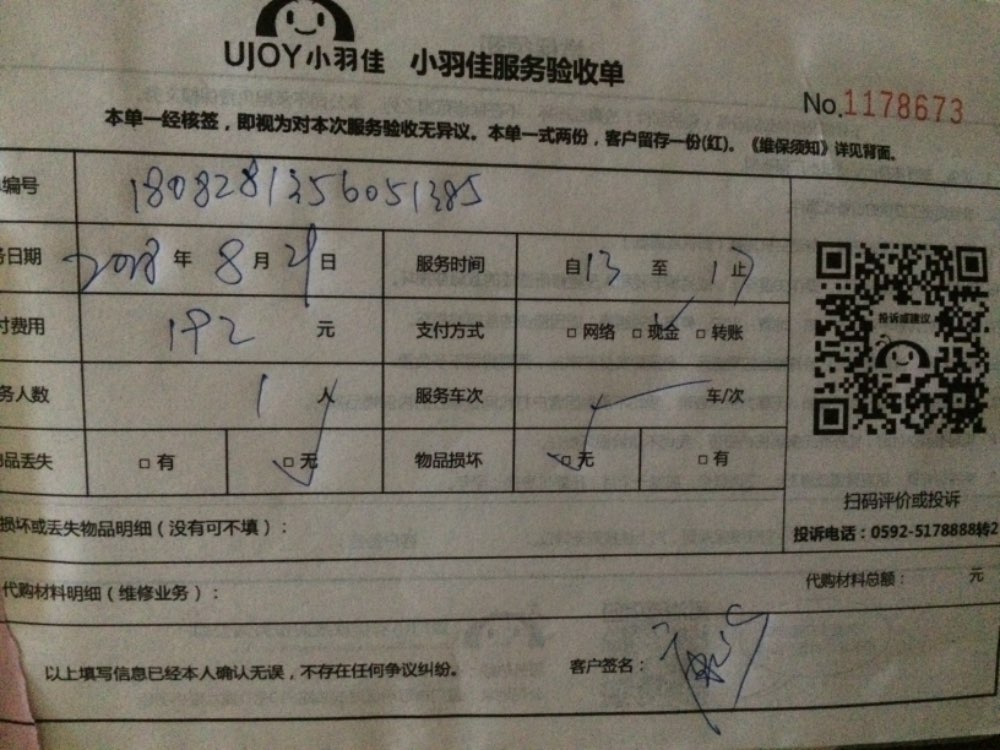 UJOY小羽佳 小羽佳服务验收单
No.1178673
本单一经核签，即视为对本次服务验收无异议。本单一式两份，客户留存一份(红)。《维保须知》详见背面。
编号 1808281356051385
务日期 2018 年 8 月 29 日 服务时间 自13 至 17 止
付费用 192 元 支付方式 □网络 □现金 □转账
务人数 1 人 服务车次 车/次
物品丢失 □有 □无 物品损坏 □无 □有
投诉或建议
扫码评价或投诉
投诉电话：0592-5178888转2
损坏或丢失物品明细（没有可不填）：
代购材料明细（维修业务）： 代购材料总额： 元
以上填写信息已经本人确认无误，不存在任何争议纠纷。 客户签名：